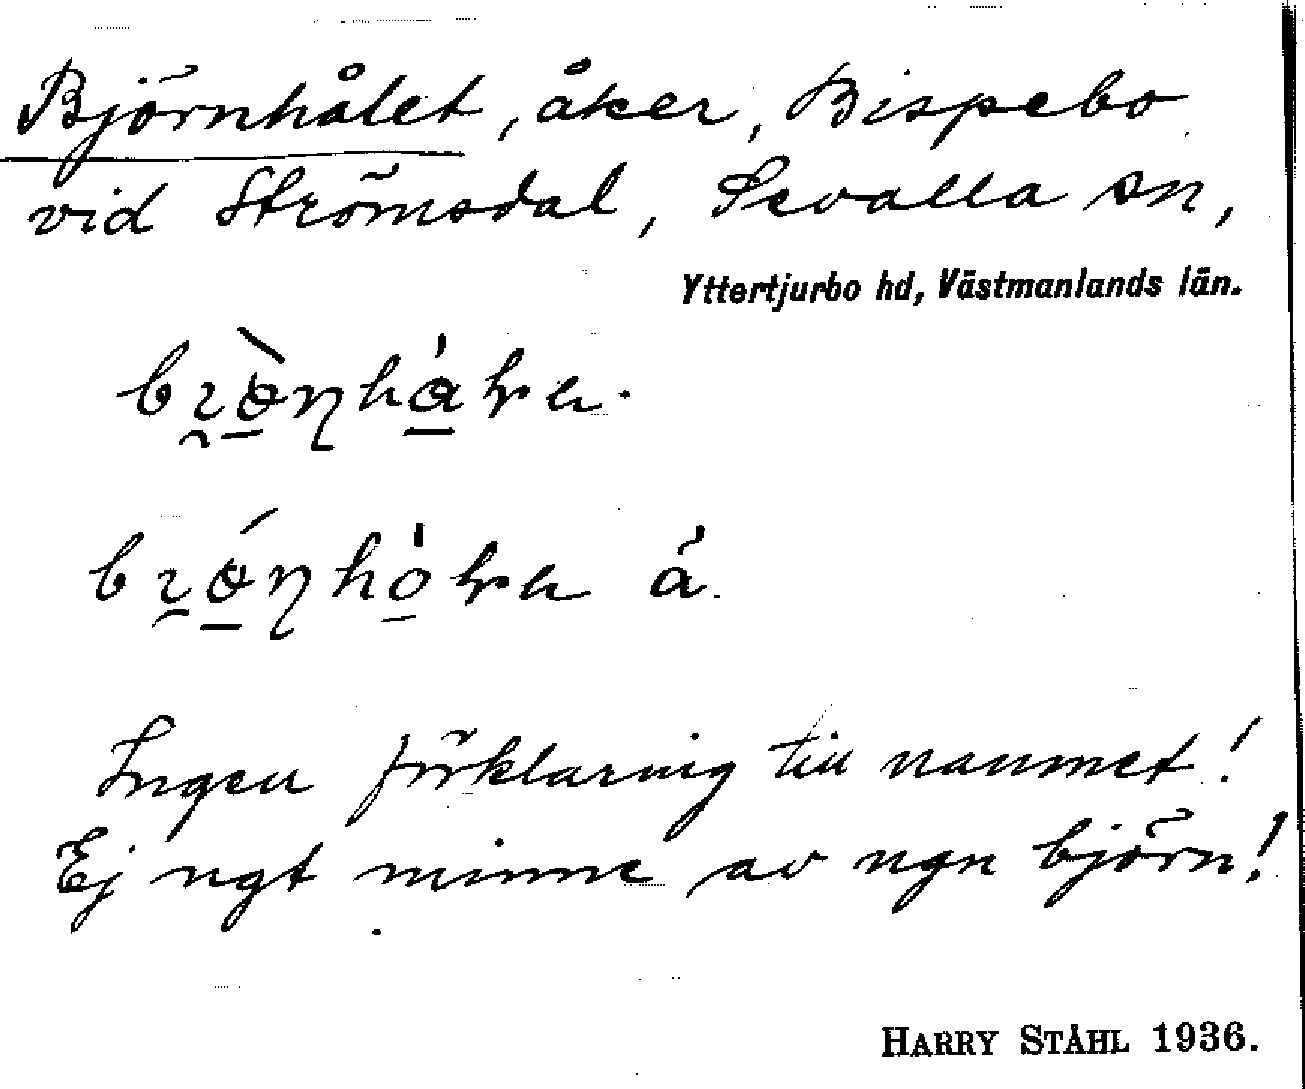 Björnhålet, åker, Bispebo
vid Strömsdal, Sevalla sn,
Yttertjurbo hd, Västmanlands län.
Ingen förklaring till namnet!
Ej ngt minne av ngn björn!
HARRY STÅHL 1936.